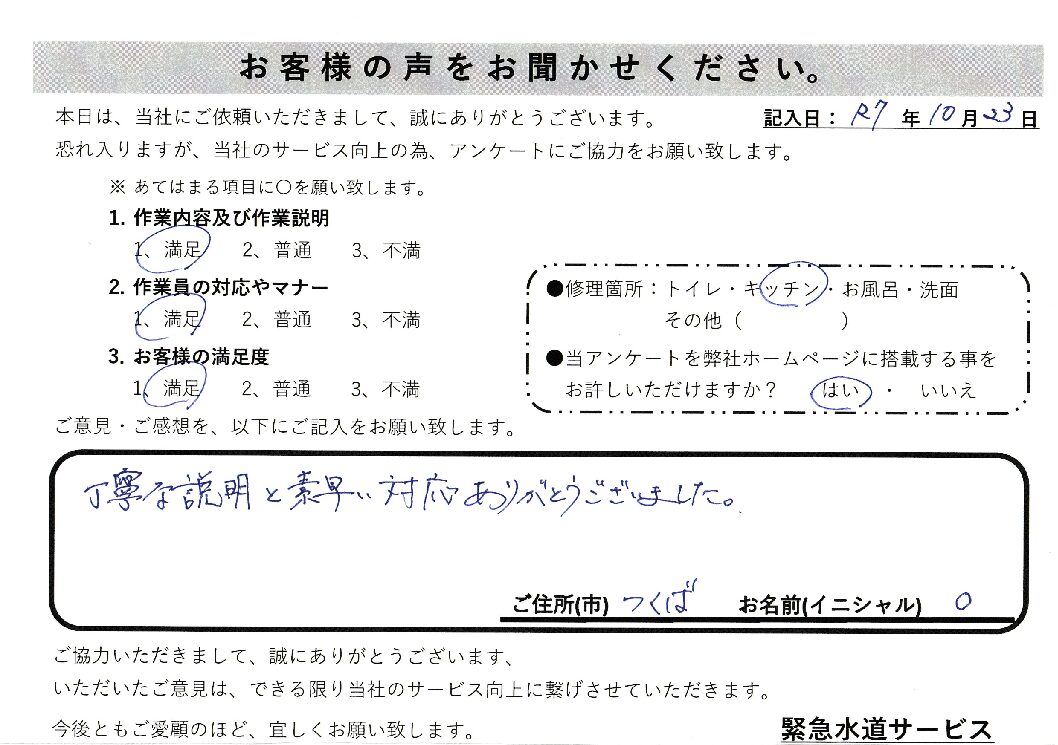 お客様の声をお聞かせください。
本日は、当社にご依頼いただきまして、誠にありがとうございます。
記入日： R7 年 10 月 23 日
恐れ入りますが、当社のサービス向上の為、アンケートにご協力をお願い致します。
※ あてはまる項目に〇を願い致します。
1. 作業内容及び作業説明
1、満足 2、普通 3、不満
2. 作業員の対応やマナー
1、満足 2、普通 3、不満
3. お客様の満足度
1、満足 2、普通 3、不満
●修理箇所：トイレ・キッチン・お風呂・洗面
その他（ ）
●当アンケートを弊社ホームページに搭載する事を
お許しいただけますか？ はい ・ いいえ
ご意見・ご感想を、以下にご記入をお願い致します。
丁寧な説明と素早い対応ありがとうございました。
ご住所(市) つくば お名前(イニシャル) O
ご協力いただきまして、誠にありがとうございます、
いただいたご意見は、できる限り当社のサービス向上に繋げさせていただきます。
今後ともご愛顧のほど、宜しくお願い致します。
緊急水道サービス